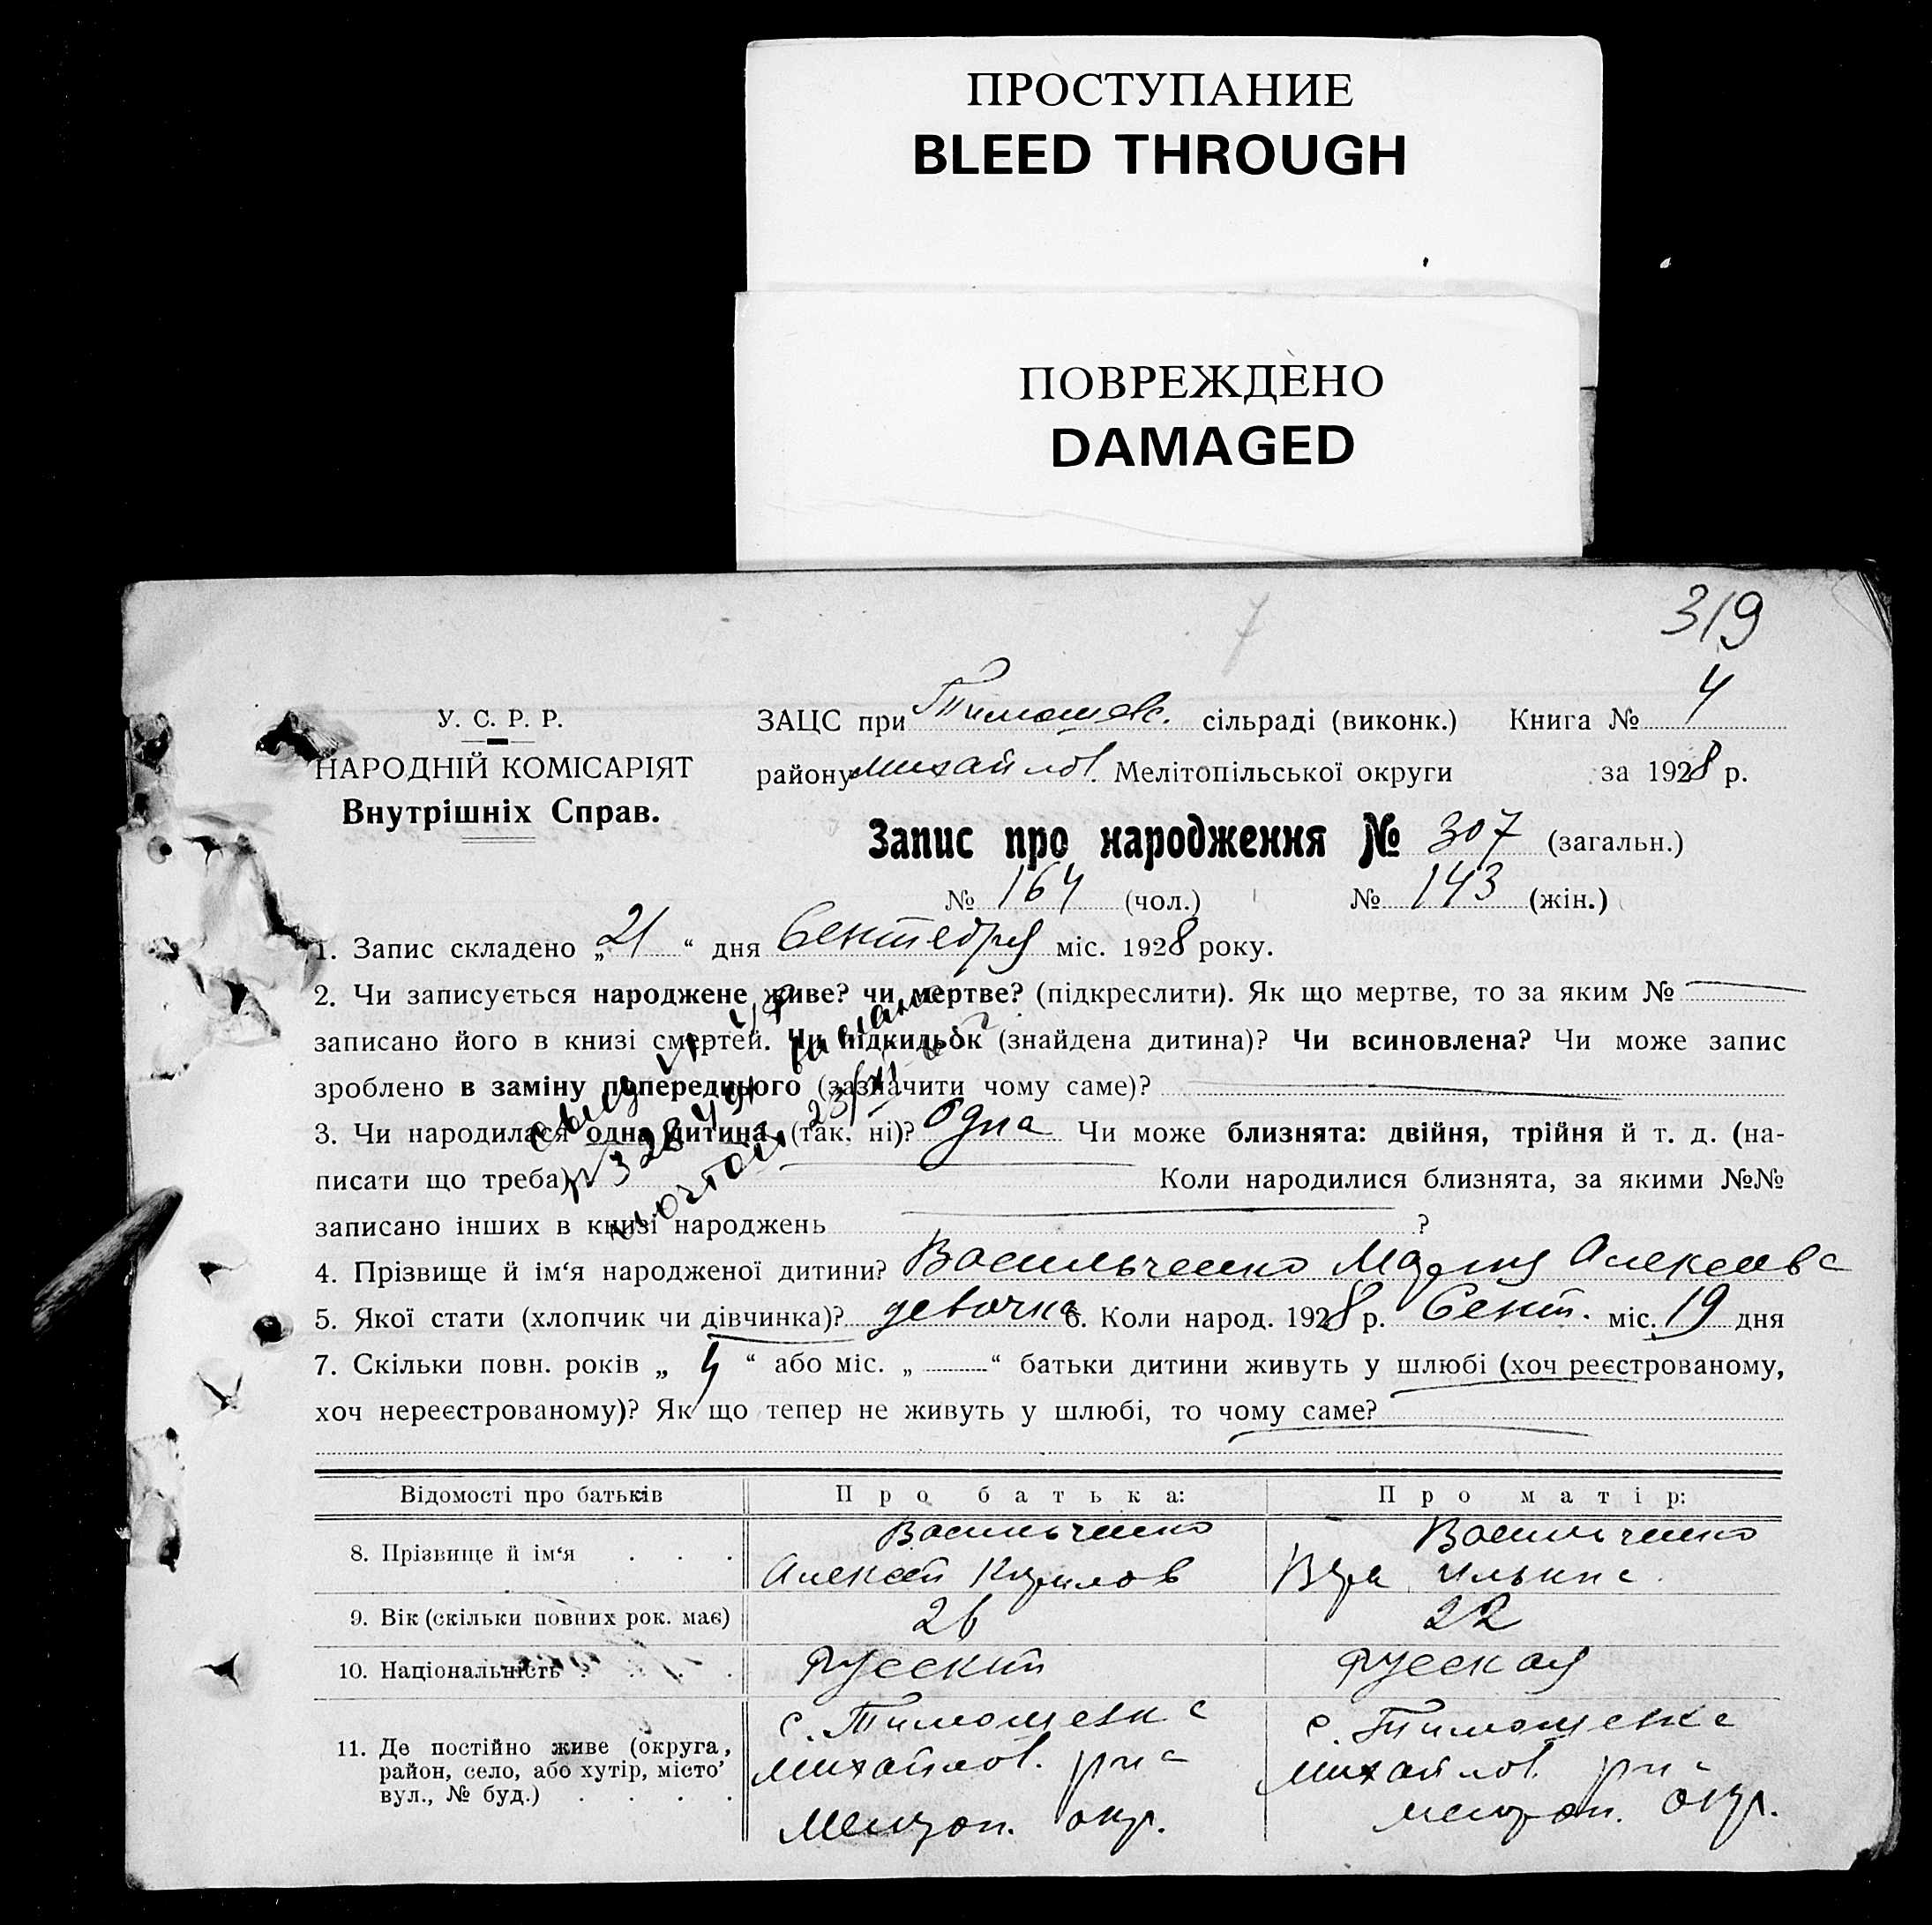 ПРОСТУПАНИЕ
BLEED THROUGH
ПОВРЕЖДЕНО
DAMAGED
7
319
У. С. Р. Р.
НАРОДНІЙ КОМІСАРІЯТ
Внутрішніх Справ.
ЗАЦС при Тимошевс. сільраді (виконк.) Книга № 4
району Михайлов. Мелітопільської округи за 1928 р.
Запис про народження № 307 (загальн.)
№ 164 (чол.) № 143 (жін.)
1. Запис складено „21“ дня Сентября міс. 1928 року.
2. Чи записується народжене живе? чи мертве? (підкреслити). Як що мертве, то за яким №
записано його в книзі смертей. Чи підкидьок (знайдена дитина)? Чи всиновлена? Чи може запис
зроблено в заміну попереднього (зазначити чому саме)?
3. Чи народилася одна дитина (так, ні)? одна Чи може близнята: двійня, трійня й т. д. (на-
писати що треба) Коли народилися близнята, за якими №№
записано інших в книзі народжень ?
4. Прізвище й ім‘я народженої дитини? Васильченко Мария Алексеевa
5. Якої стати (хлопчик чи дівчинка)? девочка 6. Коли народ. 1928 р. Сент. міс. 19 дня
7. Скільки повн. років „ 4 “ або міс. „ “ батьки дитини живуть у шлюбі (хоч реєстрованому,
хоч нереєстрованому)? Як що тепер не живуть у шлюбі, то чому саме?
Відомості про батьків Про батька: Про матір:
8. Прізвище й ім‘я . . . Васильченко Алексей Кирилов Васильченко Вера Ильинa
9. Вік (скільки повних рок. має) 26 22
10. Національність . . . . Русский Русская
11. Де постійно живе (округа,
район, село, або хутір, місто
вул., № буд.) . . . .
с. Тимошевка
Михайлов. р-на
Мелитоп. окр.
с. Тимошевка
Михайлов. р-на
Мелитоп. окр.